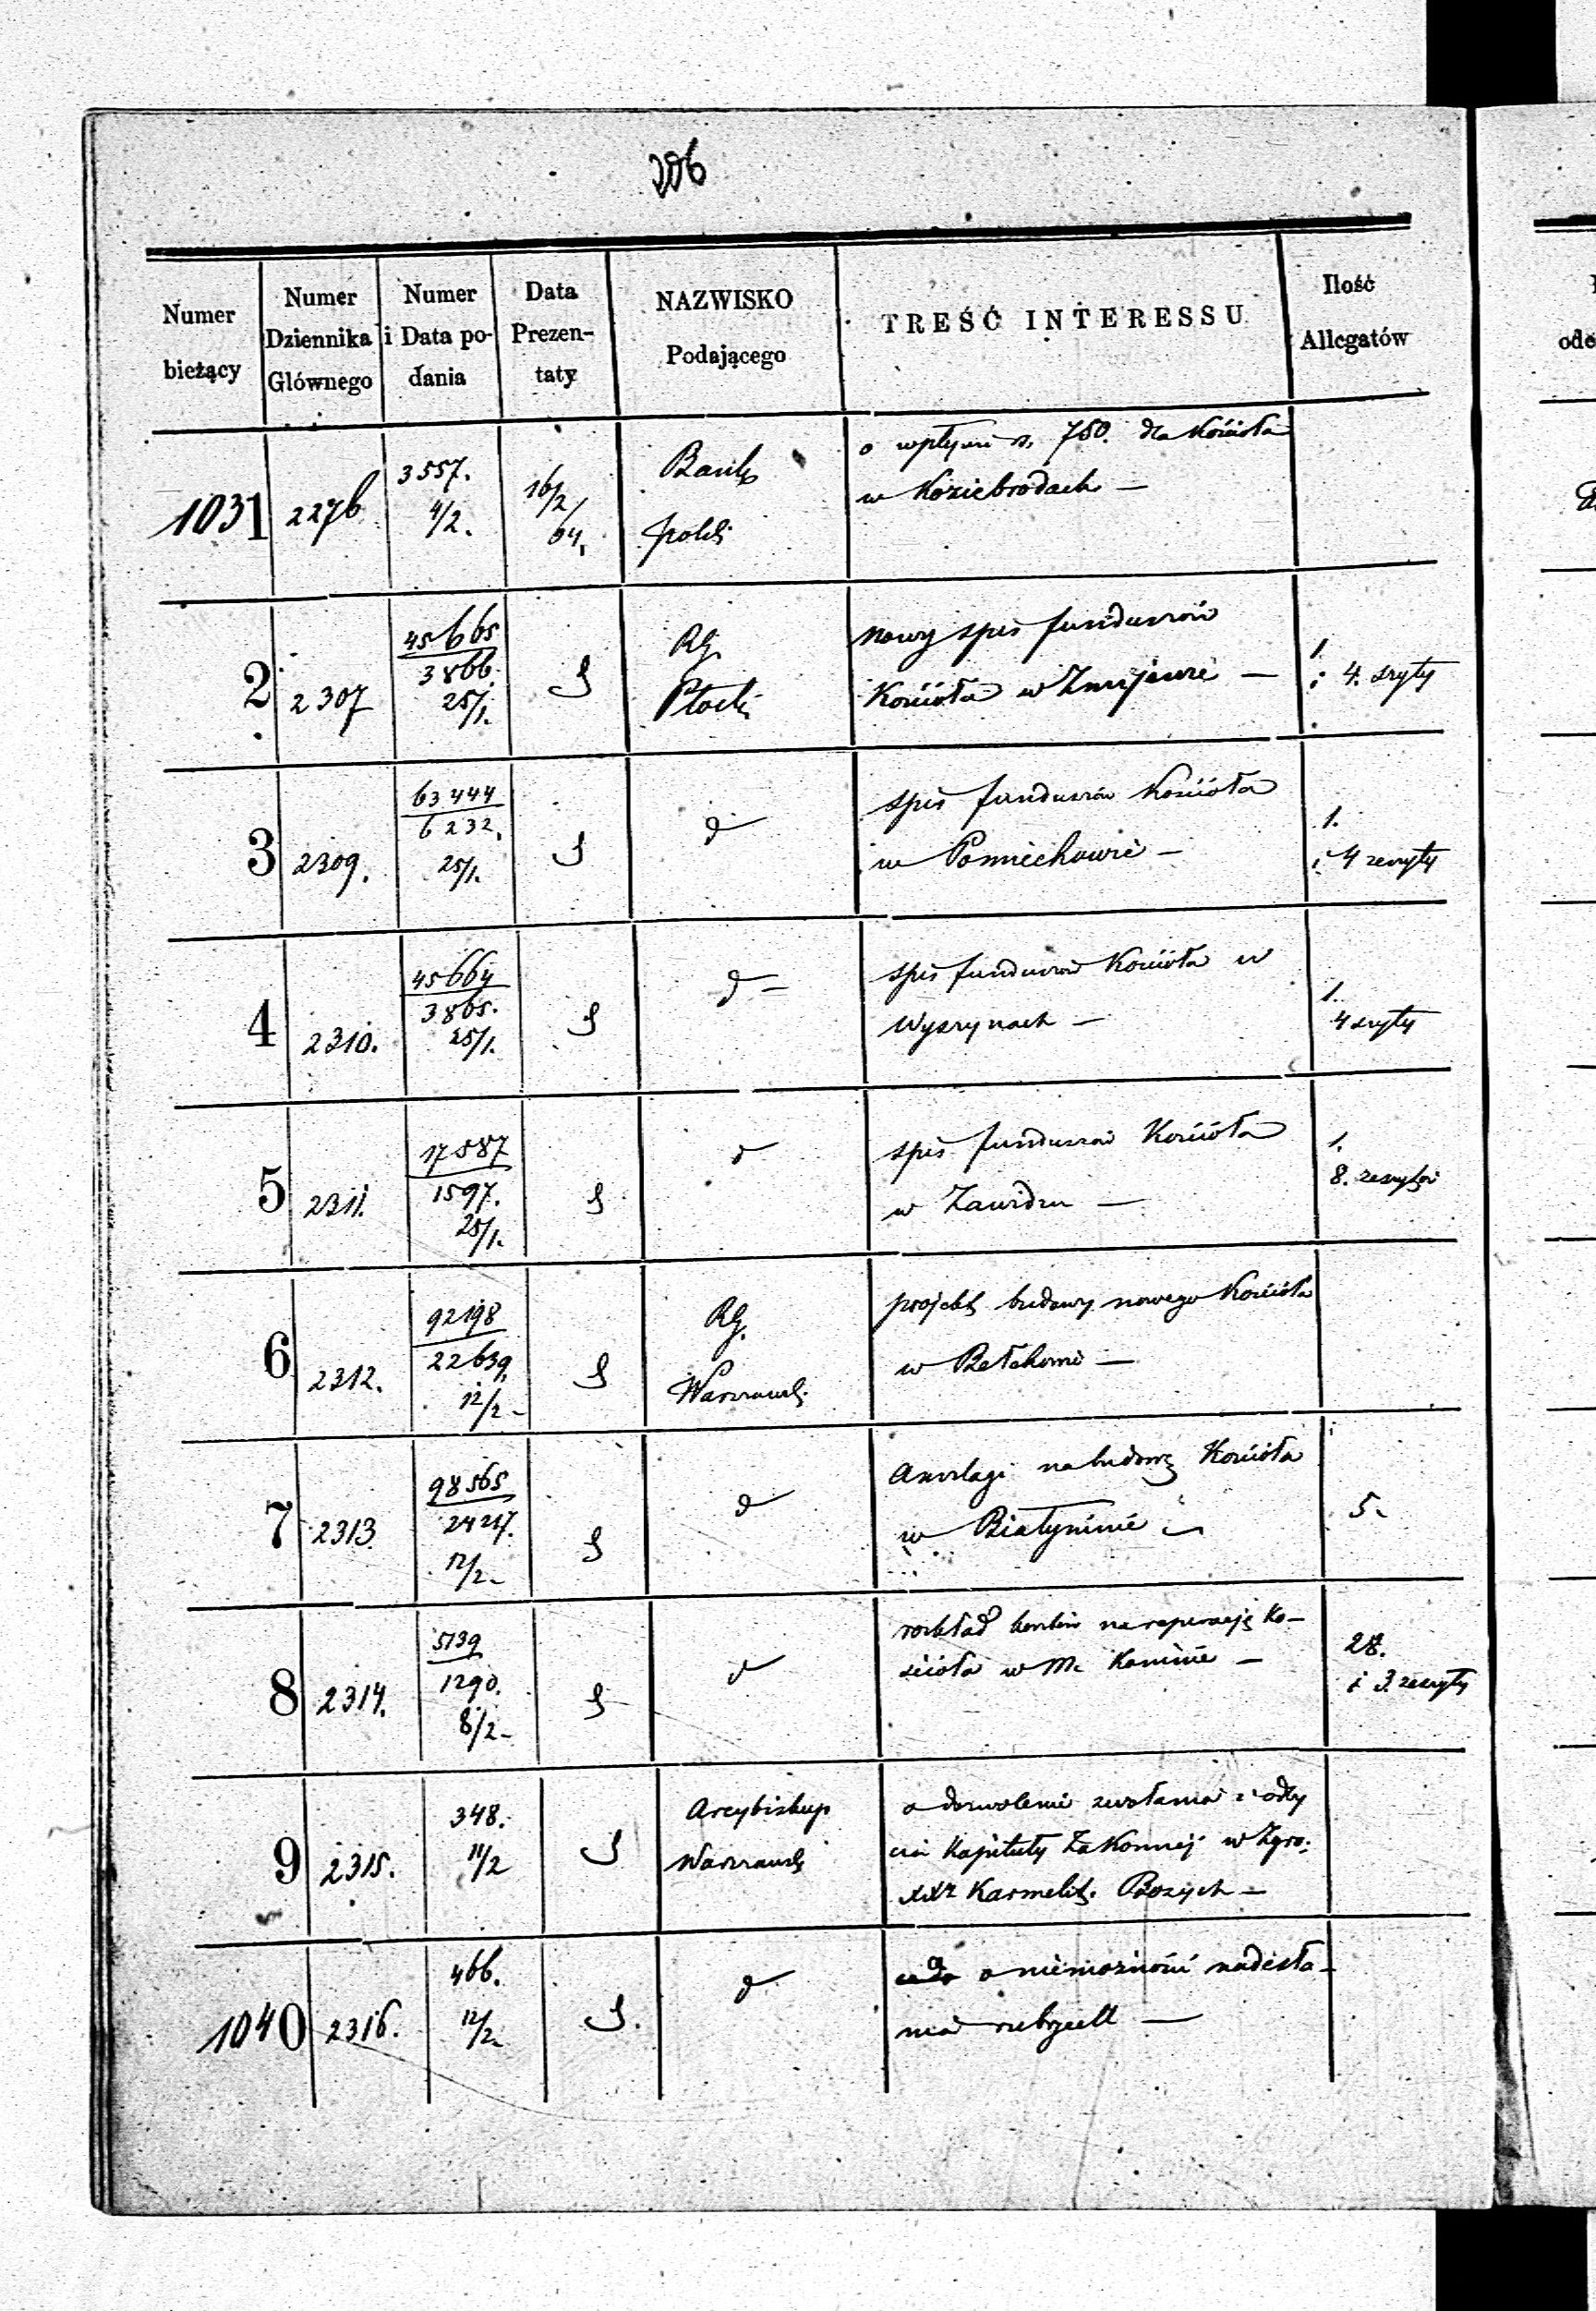 206
Numer bieżący
Numer Dziennika Głównego
Numer i Data podania
Data Prezentaty
NAZWISKO Podającego
TREŚĆ INTERESSU
Ilość Allegatów
1031 2276 3557. 4/2. 16/2/64. Bank polski
o wpłynie rs. 750. dla Kościoła
w Koziebrodach —
2 2307 45665 3866. 25/1. RG. Płocki
nowy spis funduszów
Kościoła w Zmijewie —
1. i 4. szyty
3 2309. 63444 6232. 25/1. d
spis funduszów Kościoła
w Pomiechowie —
1. i 4 zeszyty
4 2310. 45664 3865. 25/1. d —
spis funduszów Kościoła w
Wyszynach —
1. 4 szyty
5 2311. 17587 1597. 25/1. d
spis funduszów Kościoła
w Zawidzu —
1. 8. zeszytów
6 2312. 92198 22639. 12/2 — RG. Warszawski
projekt budowy nowego Kościoła
w Bełchowie —
7 2313 98565 24217. 12/2 — d
Anszlagi na budowę Kościoła
w Białyninie —
5.
8 2314. 5739 1290. 8/2 — d
rozkład kosztów na reperację Ko-
ścioła w m. Kaminie —
28. i 3. zeszyty
9 2315. 348. 11/2 Arcybiskup Warszawski
o dozwolenie zwołania i odby
cia Kapituły Zakonnej w Zgro.
XXz Karmelit. Bozych —
1040 2316. 466. 12/2. d
o niemożności nadesła-
nia rubrycell —